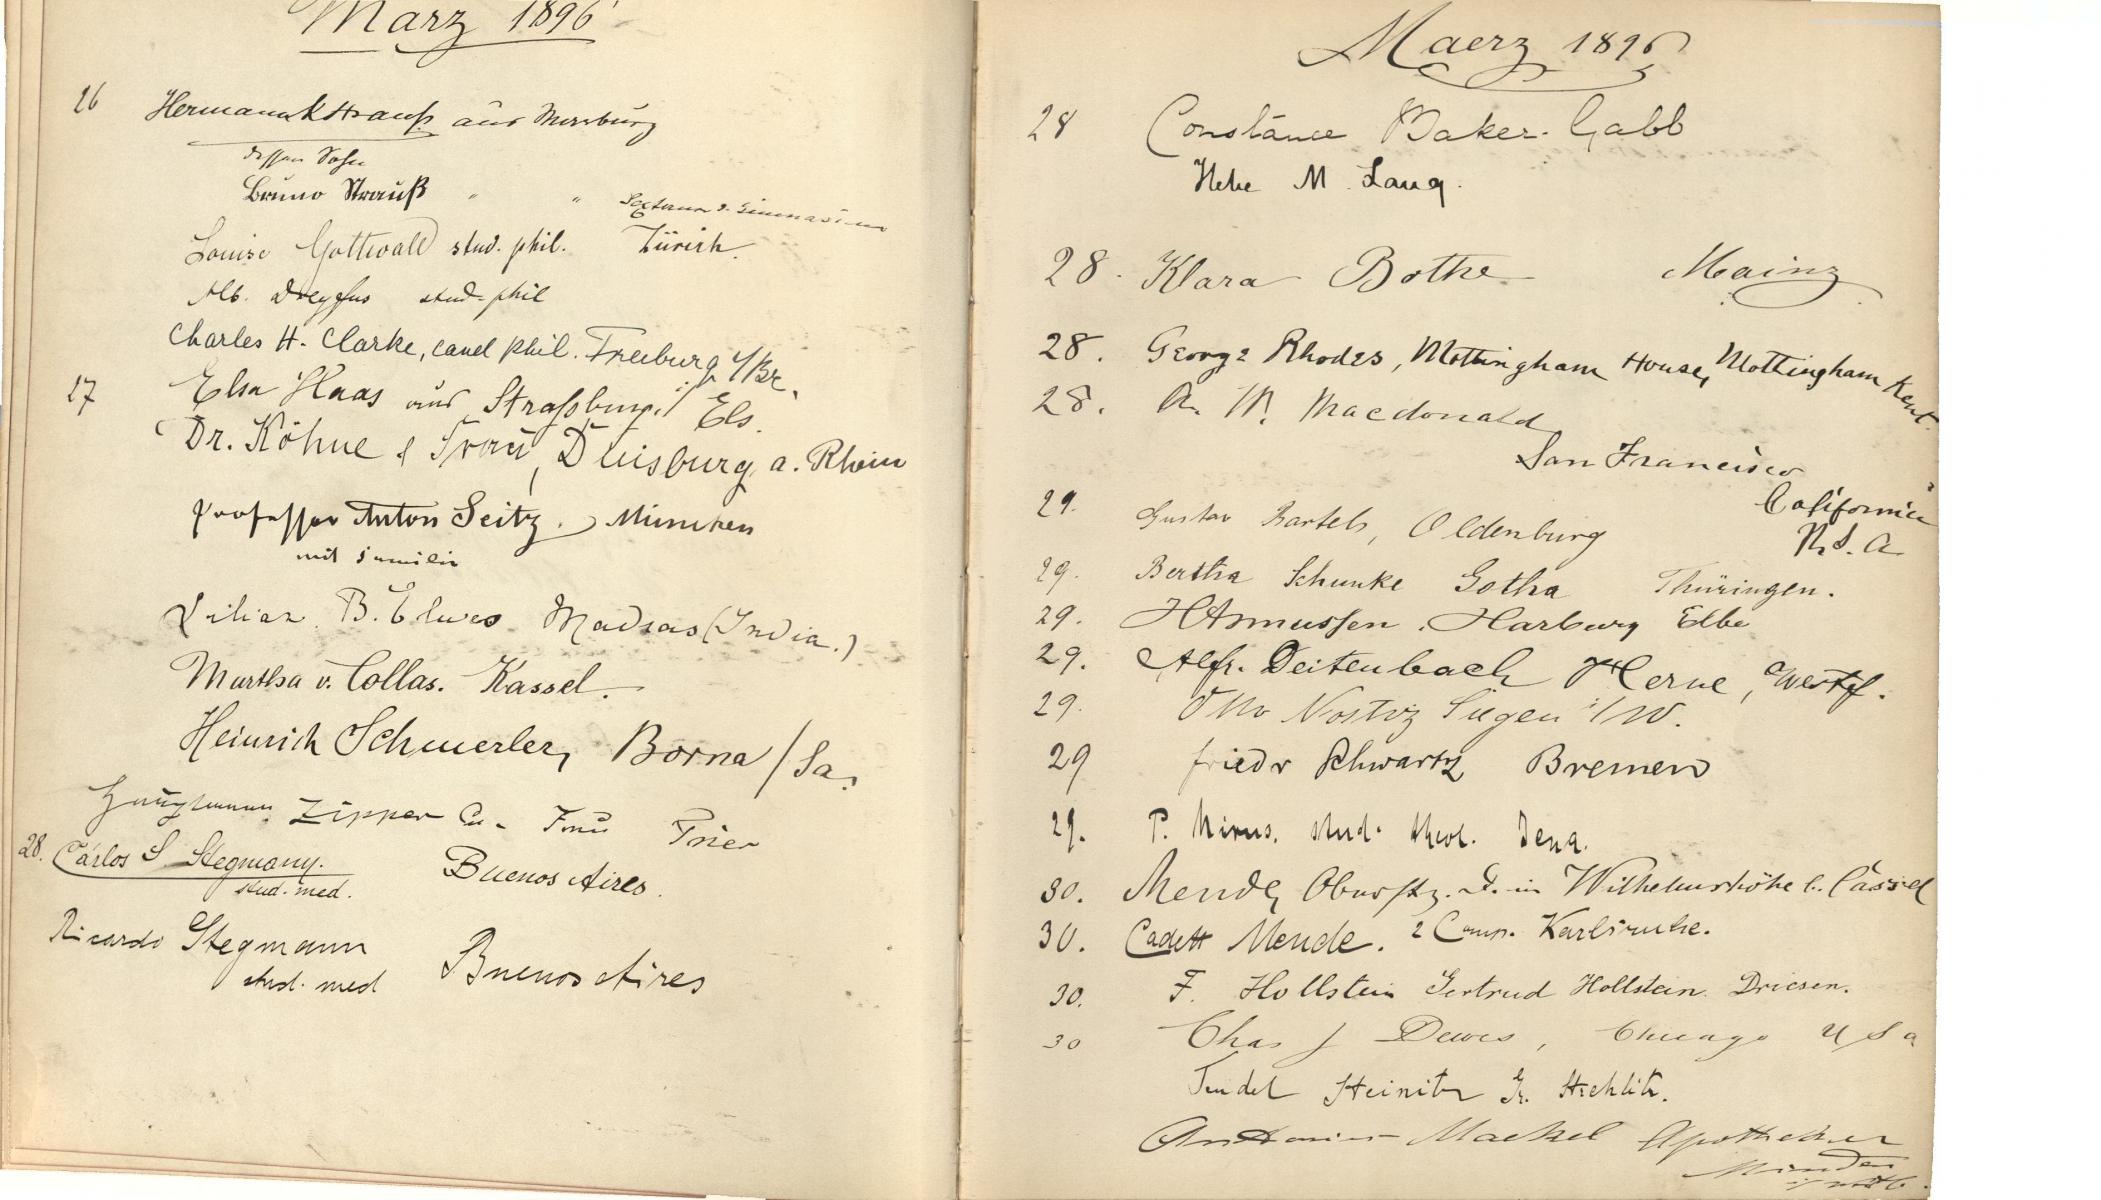 März 1896
26 Hermann Strauß aus Merseburg
dessen Sohn
Bruno Strauß " " Sextaner d. Gimnasium
Louise Gottwald stud. phil. Zürich.
Alb. Dreyfus stud. phil
Charles H. Clarke, cand phil. Freiburg i/Br.
27 Elsa Haas aus Straßburg i/ Els.
Dr. Köhne & Frau, Duisburg a. Rhein
Professor Anton Seitz, München
mit Familie
Lilian B. Elwes Madras (India.)
Martha v. Collas. Kassel.
Heinrich Schmerler, Borna / Sa.
Hauptmann Zipper u. Frau Trier
28. Carlos S Stegmann.
stud. med. Buenos Aires.
Ricardo Stegmann
stud. med Buenos Aires
Maerz 1896
28 Constance Baker-Gabb
Hebe M. Lang.
28. Klara Bothe Mainz
28. George Rhodes, Mottingham House, Mottingham Kent.
28. A. W. Macdonald
San Francisco
California
U. S. A
29. Gustav Bartels, Oldenburg
29. Bertha Schunke Gotha Thüringen.
29. H Asmussen. Harburg Elbe
29. Alfr. Deitenbach Herne, Westf.
29. Otto Nostiz Siegen i/W.
29 friedr Schwartz Bremen
29. P. Mirus. stud. theol. Jena.
30. Mende, in Wilhelmshöhe b. Cassel
30. Cadett Mende. 2 Comp. Karlsruhe.
30. F. Hollstein Gertrud Hollstein. Driesen.
30 Chas J Dewes, Chicago U S a
Heinitz Gr. Strehlitz.
Mackel Apotheker
Minden